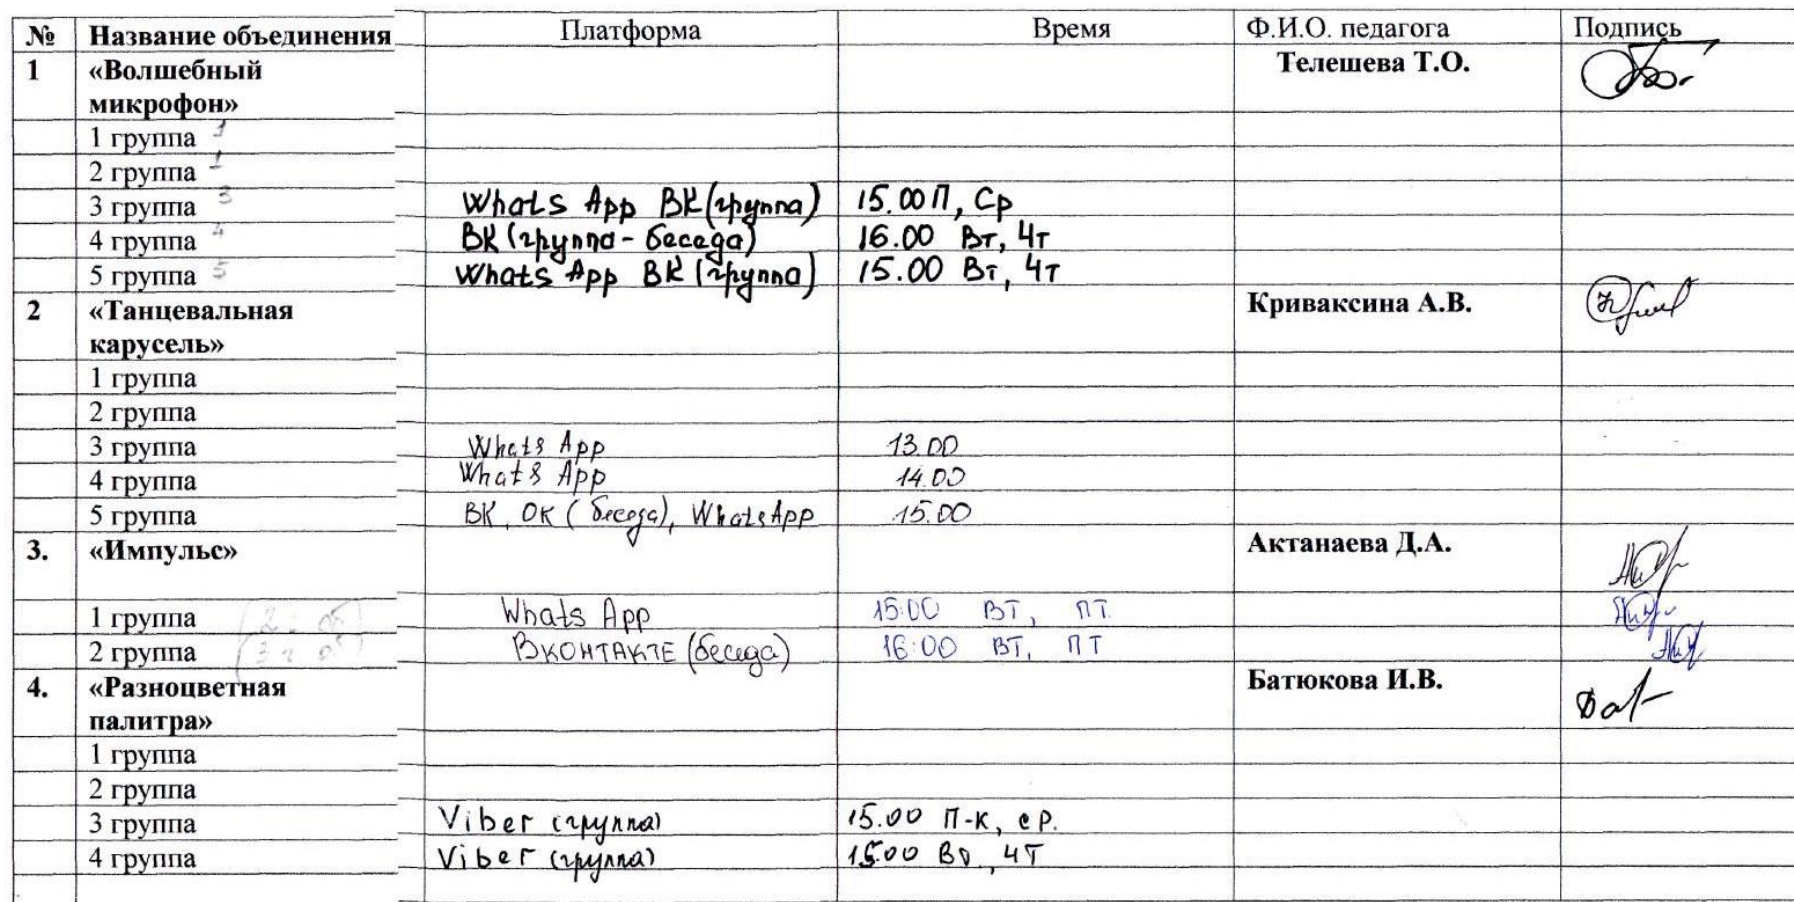 № Название объединения Платформа Время Ф.И.О. педагога Подпись
1 «Волшебный Телешева Т.О.
микрофон»
1 группа 1
2 группа 1
3 группа 3 Whats App ВК (группа) 15.00 П, Ср
4 группа 4 ВК (группа - беседа) 16.00 Вт, Чт
5 группа 5 Whats App ВК (группа) 15.00 Вт, Чт
2 «Танцевальная Криваксина А.В.
карусель»
1 группа
2 группа
3 группа Whats App 13.00
4 группа Whats App 14.00
5 группа ВК, ОК (беседа), WhatsApp 15.00
3. «Импульс» Актанаева Д.А.
1 группа Whats App 15:00 ВТ, ПТ.
2 группа ВКОНТАКТЕ (беседа) 16:00 ВТ, ПТ
4. «Разноцветная Батюкова И.В.
палитра»
1 группа
2 группа
3 группа Viber (группа) 15.00 П-к, ср.
4 группа Viber (группа) 15.00 Вт, чт